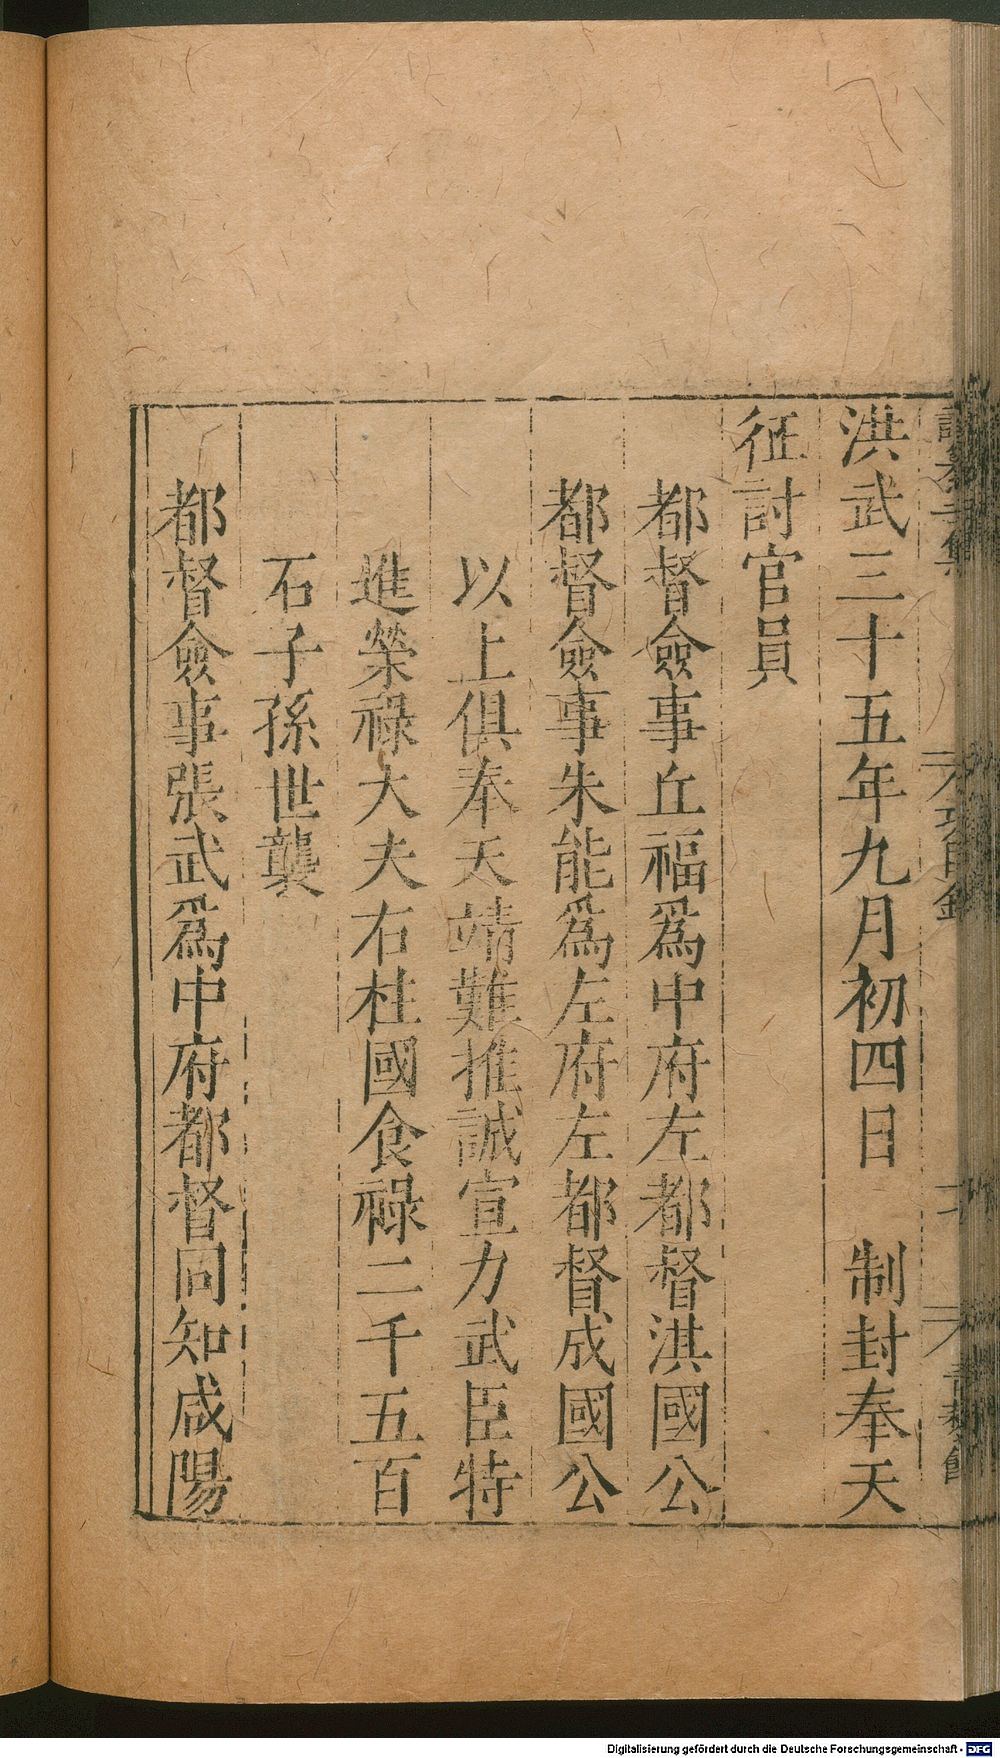 洪武三十五年九月初四日　制封奉天
征討官員
都督僉事丘福爲中府左都督淇國公
都督僉事朱能爲左府左都督成國公
以上俱奉天靖難推誠宣力武臣特
進榮祿大夫右柱國食祿二千五百
石子孫世襲
都督僉事張武爲中府都督同知成陽
Digitalisierung gefördert durch die Deutsche Forschungsgemeinschaft - DFG